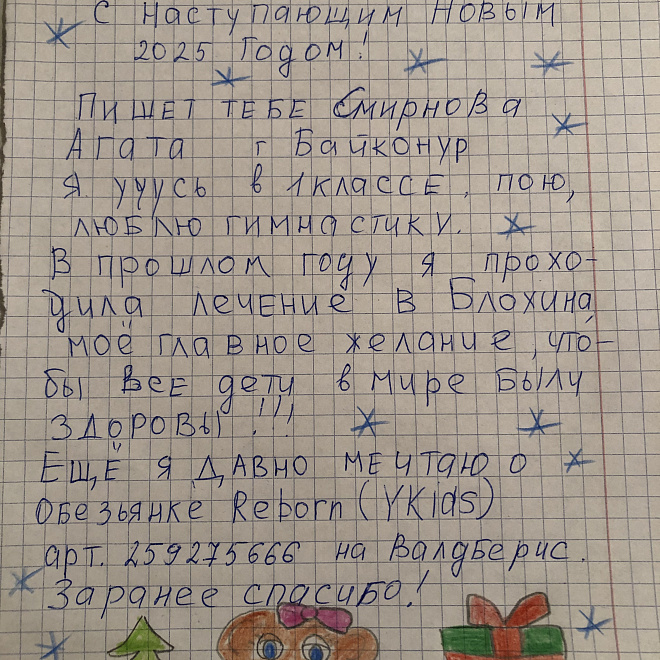 С наступающим Новым
2025 Годом!
Пишет тебе Смирнова
Агата г Байконур
Я учусь в 1 классе, пою,
люблю гимнастику.
В прошлом году я прохо-
дила лечение в Блохина,
моё главное желание, что-
бы все дети в мире были
здоровы!!!
Ещё я давно мечтаю о
обезьянке Reborn (YKids)
арт. 259275666 на Валдберис.
Заранее спасибо!